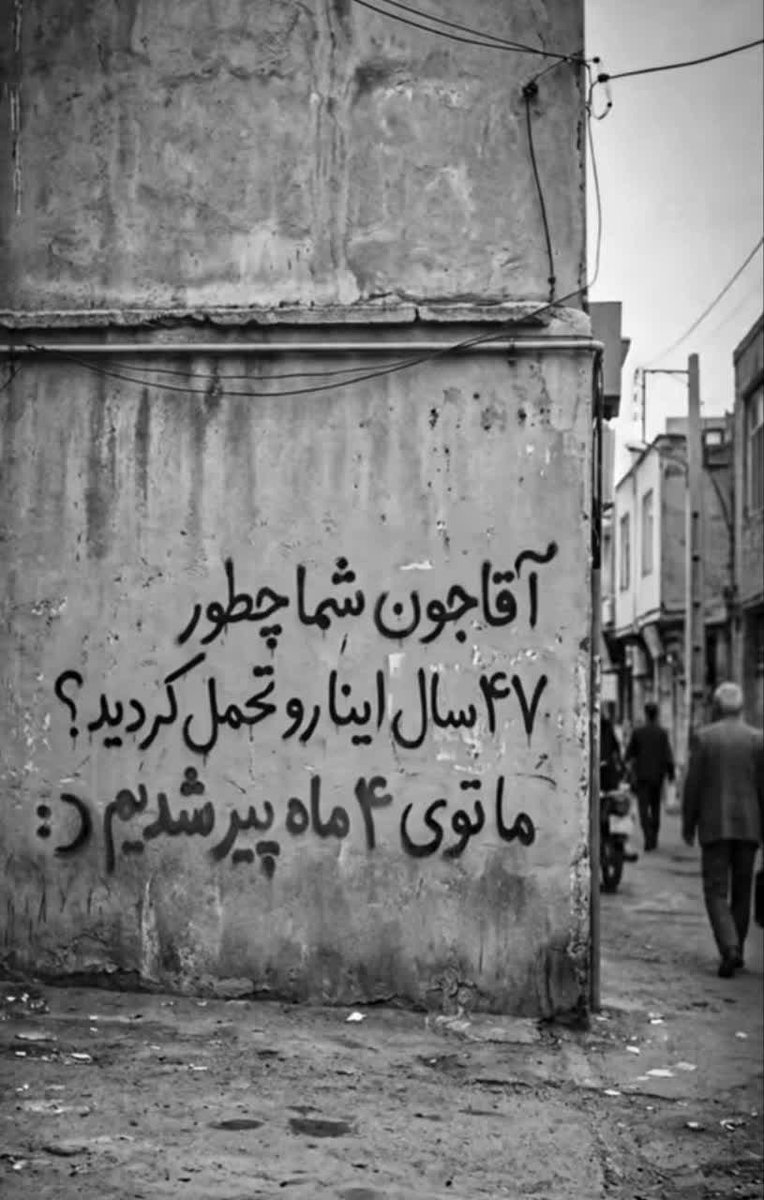 آقاجون شما چطور
۴۷ سال اینا رو تحمل کردید؟
ما توی ۴ ماه پیر شدیم :)